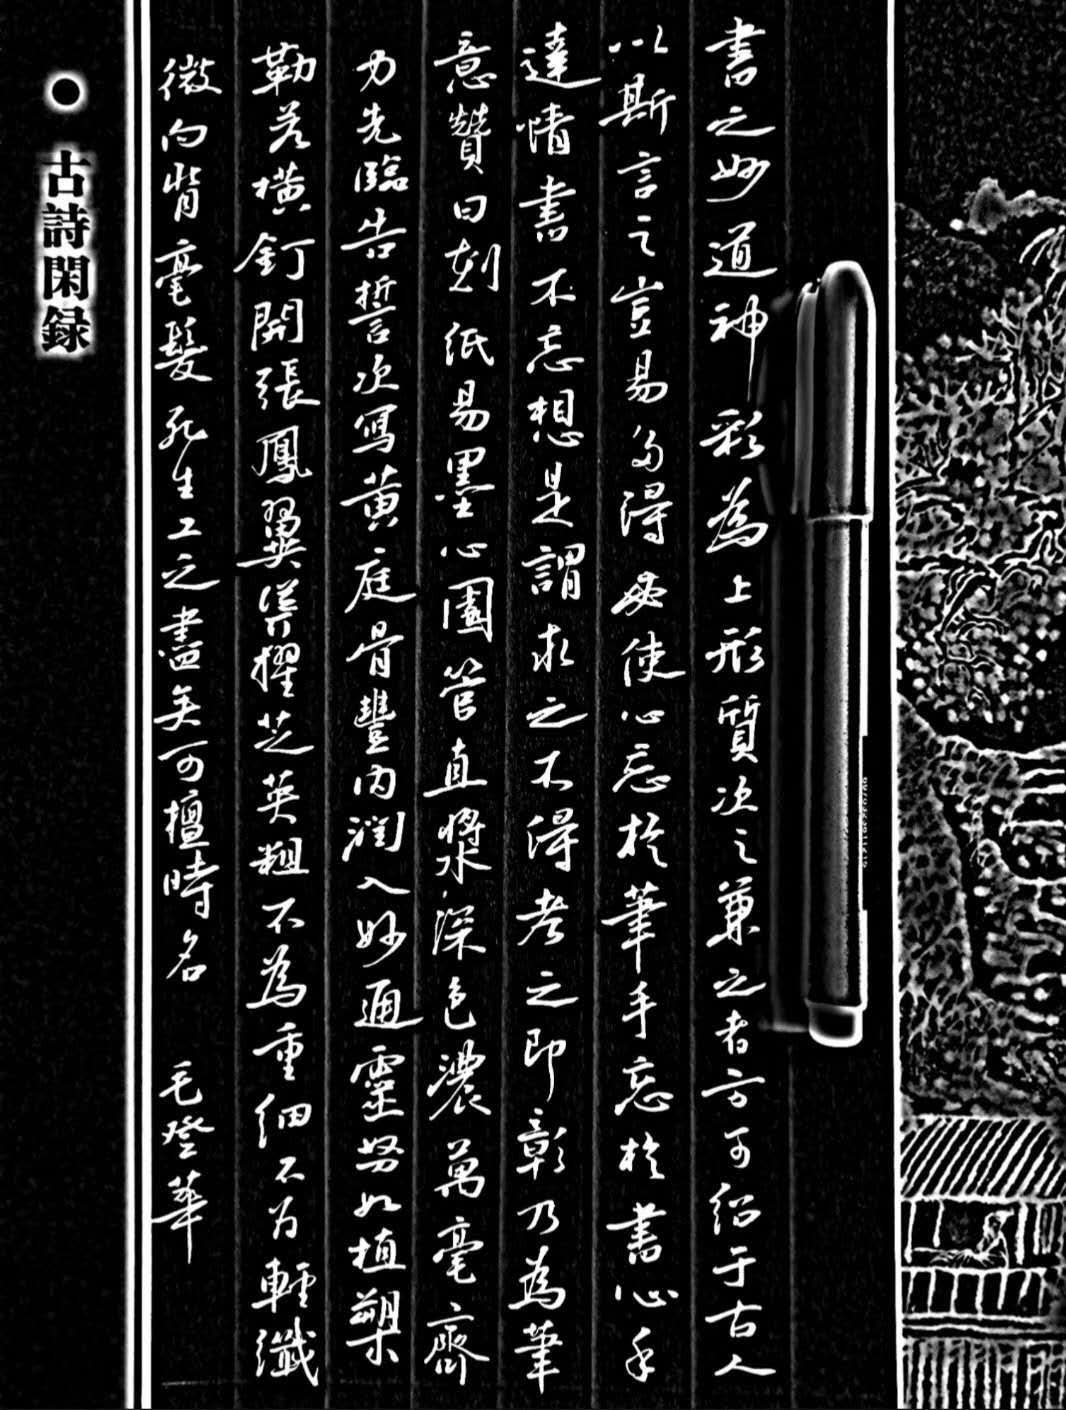 書之妙道神彩為上形質次之兼之者方可紹于古人
以斯言之豈易多得必使心忘於筆手忘於書心手
達情書不忘想是謂求之不得考之即彰乃為筆
意贊曰刻紙易墨心圓管直漿深色濃萬毫齊
力先臨告誓次寫黃庭骨豐肉潤入妙通靈努如植槊
勒若橫釘開張鳳翼聳擢芝英粗不為重細不為輕纖
微向背毫髮死生工之盡矣可擅時名 毛登華
古詩閑録